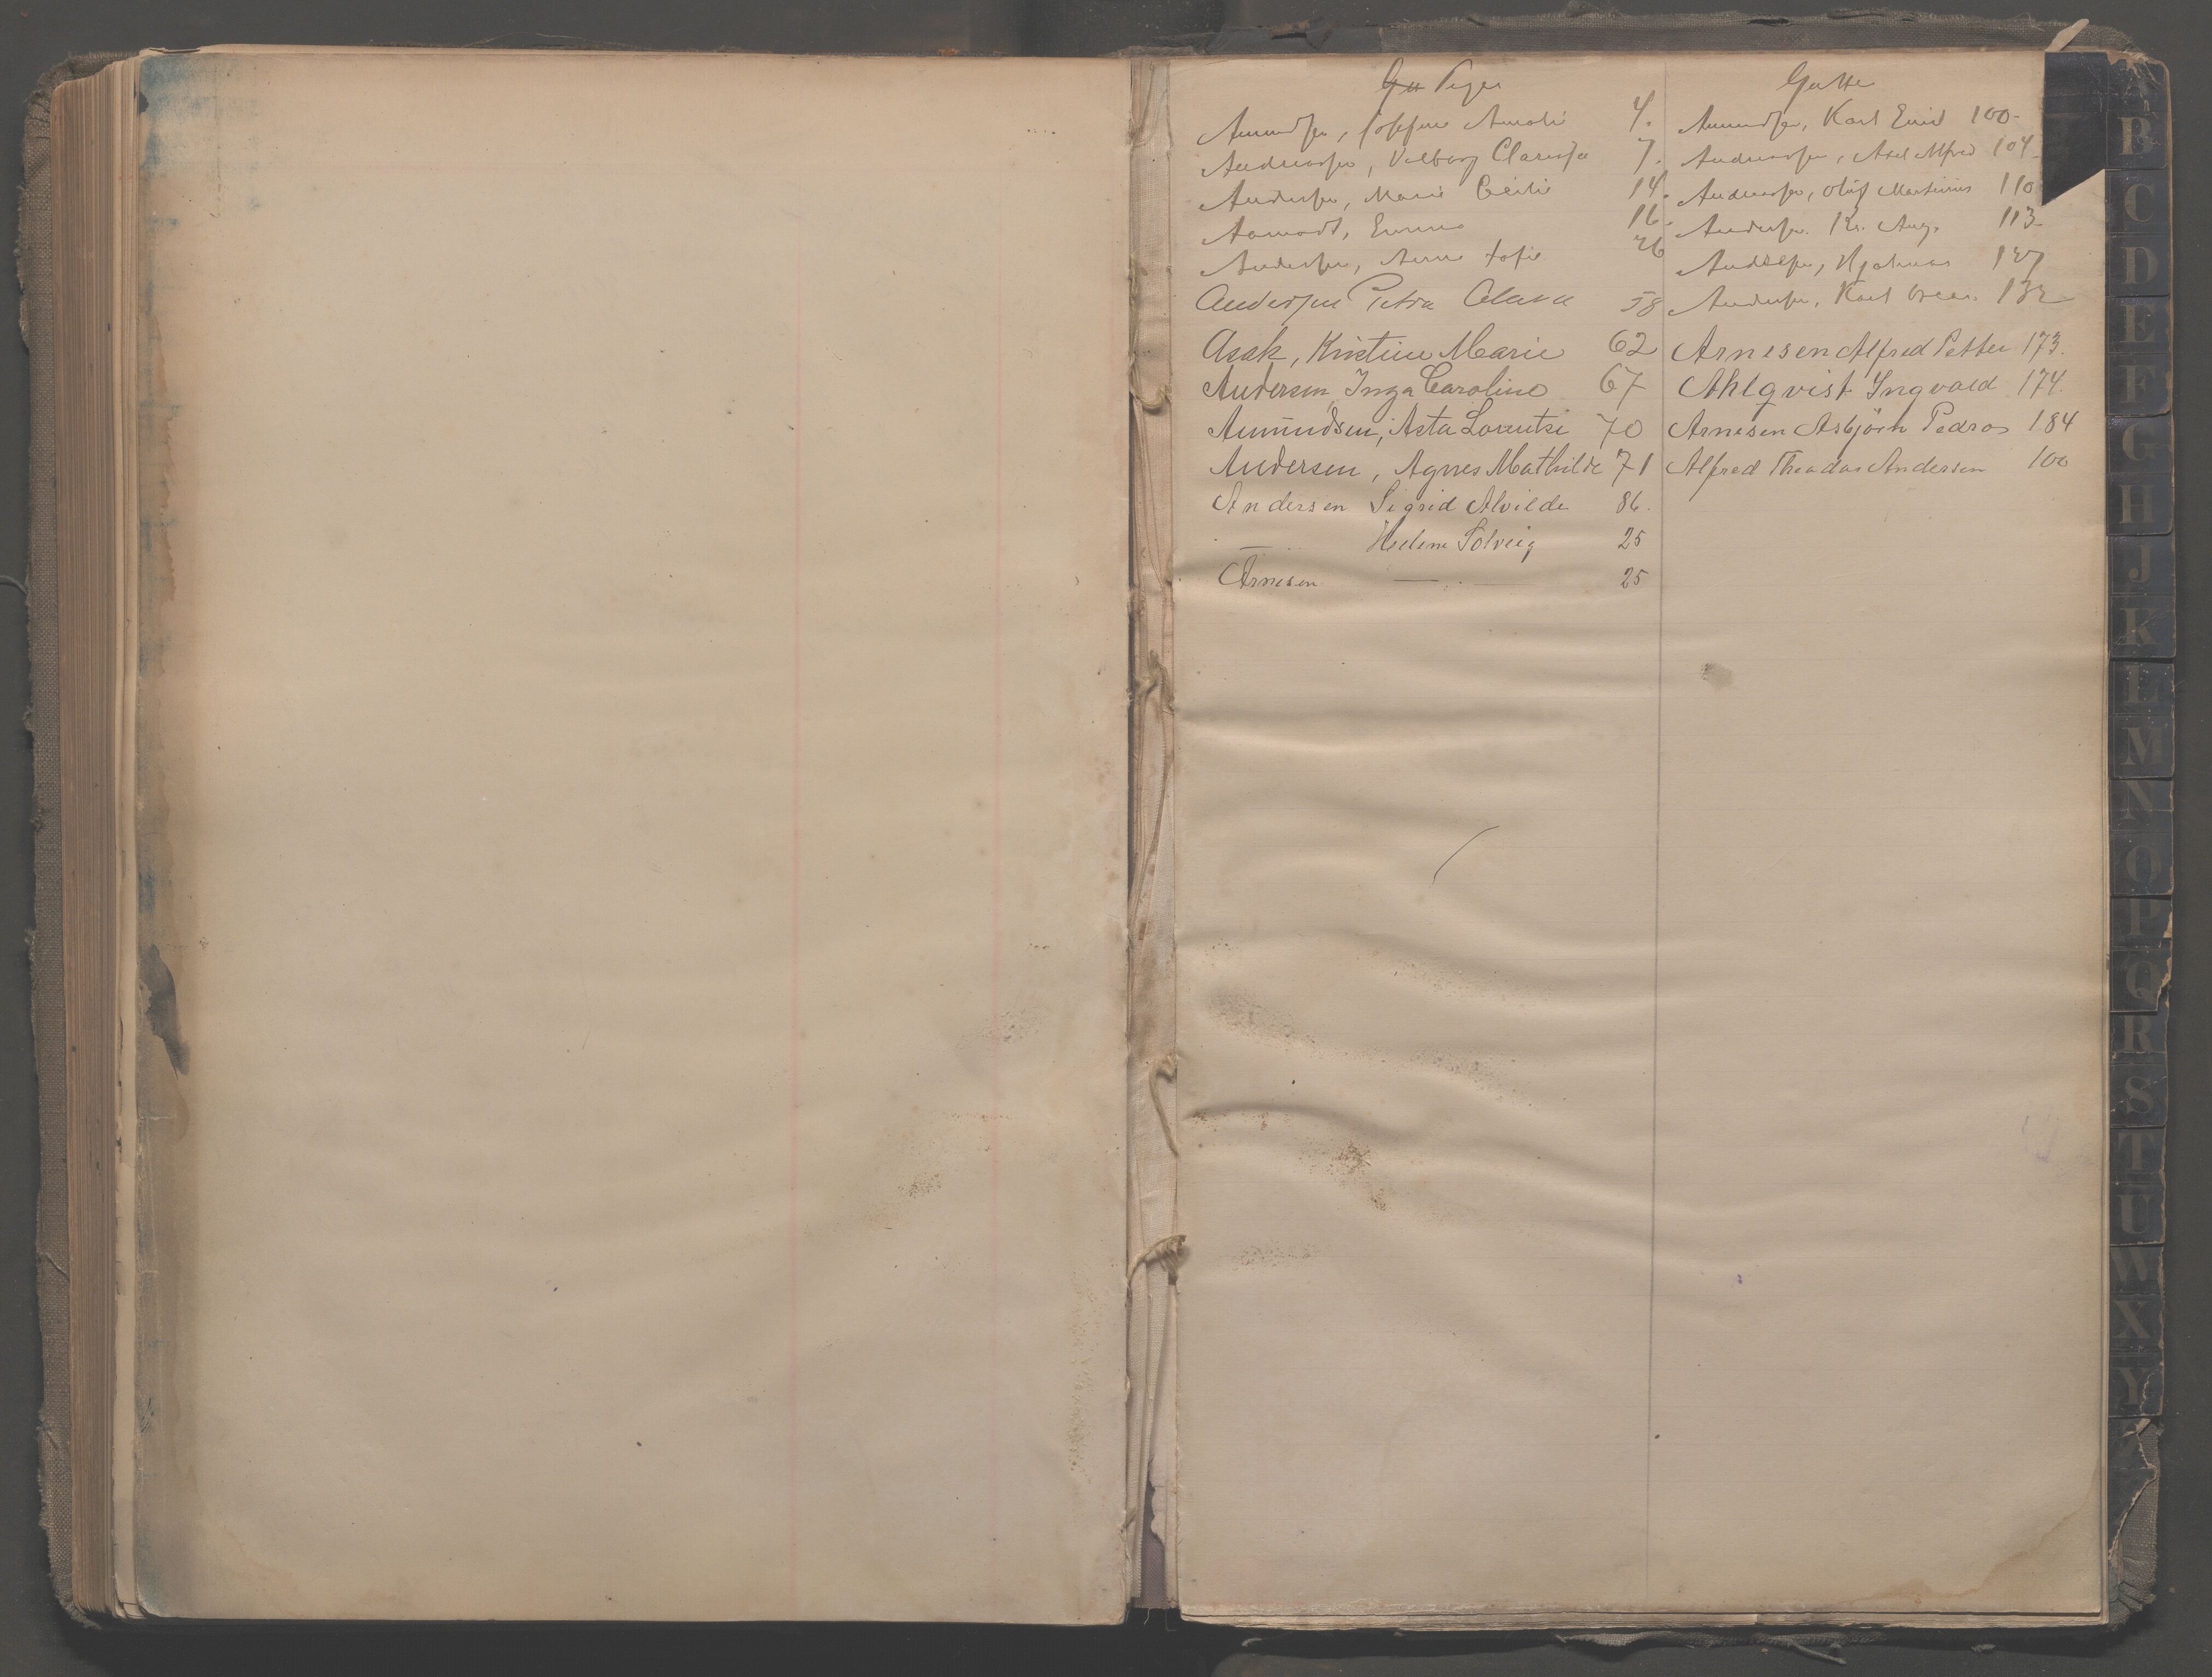 Piger
Amundsen, Josefine Amalie 4.
Andreassen, Valborg Clarissa 7.
Andersen, Marie Cecilie 14.
Aamodt, Emma 16.
Andersen, Anna Sofie 26
Andersen Petra Clara 58
Asak, Kristine Marie 62
Andersen, Inga Caroline 67
Amundsen, Asta Lorentse 70
Andersen, Agnes Mathilde 71
Andersen Sigrid Alvilde 86.
— Helene Solveig 25
Arnesen — 25
Gutte
Amundsen, Karl Emil 100-
Andreassen, Axel Alfred 104.
Andreassen, Oluf Martinius 110
Andersen. Kr. Aug. 113
Hjalmar 127
Andersen, Karl Oscar. 132
Arnesen Alfred Petter 173.
Ahlqvist Yngvald 174.
Arnesen Asbjörn Pedro 184
Alfred Theodor Andersen 100
B
C
D
E
F
G
H
J
K
L
M
N
O
P
Q
R
S
T
U
W
X
Y